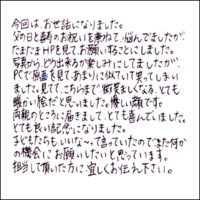 今回は、お世話になりました。
父の日と寿のお祝いを兼ねて、悩んでましたが、
たまたまHPを見てお願いすることにしました。
写真から、どう出来るか楽しみにしてましたが、
PCで原画を見て、あまりに似ていて笑ってしまい
ました。見てて、こちらまで微笑ましくなる、とても
暖かい絵だと思いました。優しい顔です。
両親のところに届きまして、とても喜んでいました。
とても良い記念になりました。
子どもたちもいいな～って言っていたのでまた何か
の機会にお願いしたいと思っています。
担当して頂いた方に宜しくお伝え下さい。